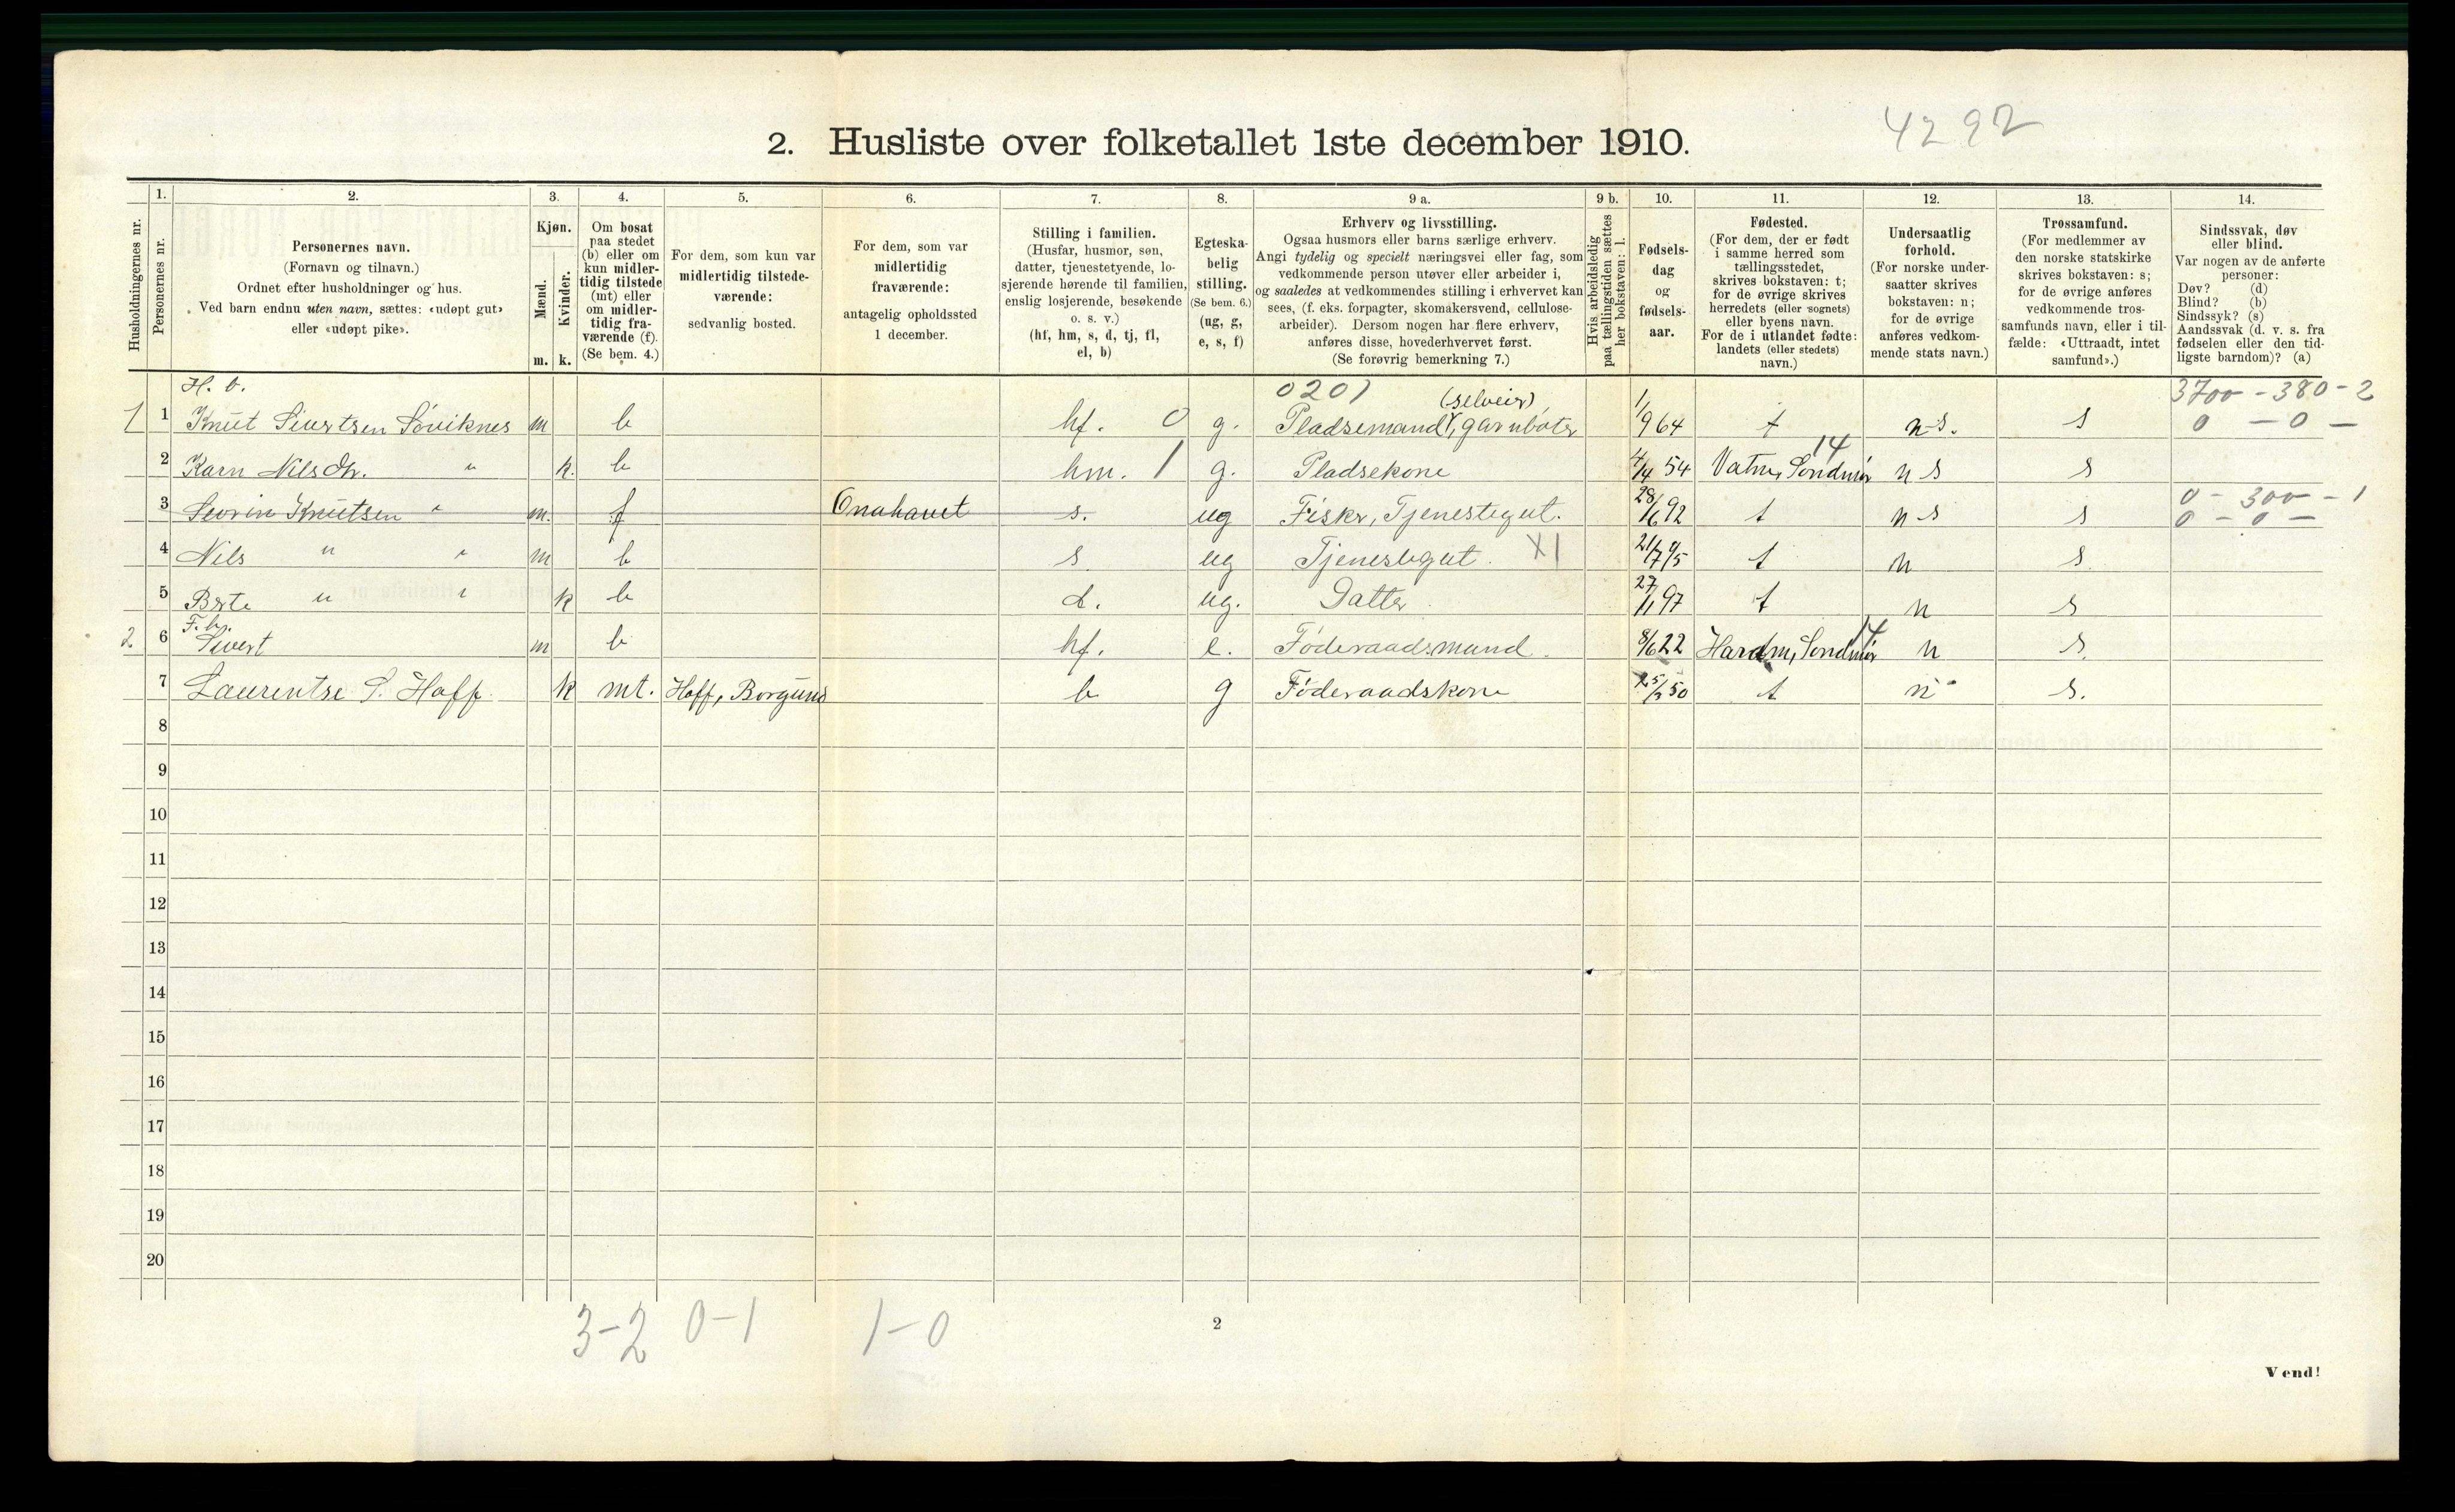 4292
2. Husliste over folketallet 1ste december 1910.
1. 2. 3. 4. 5. 6. 7. 8. 9 a. 9 b. 10. 11. 12. 13. 14.
Husholdningernes nr.
Personernes nr.
Personernes navn.
(Fornavn og tilnavn.)
Ordnet efter husholdninger og hus.
Ved barn endnu uten navn, sættes: «udøpt gut»
eller «udøpt pike».
Kjøn.
Mænd.
Kvinder.
m. k.
Om bosat
paa stedet
(b) eller om
kun midler-
tidig tilstede
(mt) eller
om midler-
tidig fra-
værende (f).
(Se bem. 4.)
For dem, som kun var
midlertidig tilstede-
værende:
sedvanlig bosted.
For dem, som var
midlertidig
fraværende:
antagelig opholdssted
1 december.
Stilling i familien.
(Husfar, husmor, søn,
datter, tjenestetyende, lo-
sjerende hørende til familien,
enslig losjerende, besøkende
o. s. v.)
(hf, hm, s, d, tj, fl,
el, b)
Egteska-
belig
stilling.
(Se bem. 6.)
(ug, g,
e, s, f)
Erhverv og livsstilling.
Ogsaa husmors eller barns særlige erhverv.
Angi tydelig og specielt næringsvei eller fag, som
vedkommende person utøver eller arbeider i,
og saaledes at vedkommendes stilling i erhvervet kan
sees, (f. eks. forpagter, skomakersvend, cellulose-
arbeider). Dersom nogen har flere erhverv,
anføres disse, hovederhvervet først.
(Se forøvrig bemerkning 7.)
Hvis arbeidsledig
paa tællingstiden sættes
her bokstaven: l.
Fødsels-
dag
og
fødsels-
aar.
Fødested.
(For dem, der er født
i samme herred som
tællingsstedet,
skrives bokstaven: t;
for de øvrige skrives
herredets (eller sognets)
eller byens navn.
For de i utlandet fødte:
landets (eller stedets)
navn.)
Undersaatlig
forhold.
(For norske under-
saatter skrives
bokstaven: n;
for de øvrige
anføres vedkom-
mende stats navn.)
Trossamfund.
(For medlemmer av
den norske statskirke
skrives bokstaven: s;
for de øvrige anføres
vedkommende tros-
samfunds navn, eller i til-
fælde: «Uttraadt, intet
samfund».)
Sindssvak, døv
eller blind.
Var nogen av de anførte
personer:
Døv? (d)
Blind? (b)
Sindssyk? (s)
Aandssvak (d. v. s. fra
fødselen eller den tid-
ligste barndom)? (a)
H. b. 0201 (selveir) 3700 - 380 - 2
1 1 Knut Sivertsen Søviknes m b hf. 0 g. Pladsemand, garnbøter 1/9 64 t n s. s 0 - 0 -
2 Karn Nilsdtr. " k. b hm. 1 g. Pladsekone 4/4 54 Vatne, Søndmør 14 n s s
3 Sevrin Knutsen " m. f Onahavet s. ug Fisker, Tjenestegut. 28/6 92 t n s s 0 - 300 - 1
0 - 0 -
4 Nils " " m b s ug Tjenestegut. X1 21/7 95 t n s.
5 Berte " " k b d. ug. Datter 27/11 97 t n s
F. b.
2. 6 Sivert m b hf. e. Føderaadsmand. 8/6 22 Haram, Søndmør 14 n s.
7 Laurentse S. Hoff k mt. Hoff, Borgund b g Føderaadskone 25/2 50 t n s.
8
9
10
11
12
13
14
15
16
17
18
19
20
3-2 0-1 1-0
2
Vend!